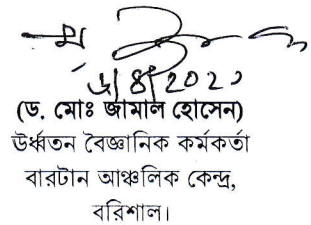 (ড. মোঃ জামাল হোসেন)
উর্ধ্বতন বৈজ্ঞানিক কর্মকর্তা
বারটান আঞ্চলিক কেন্দ্র,
বরিশাল।